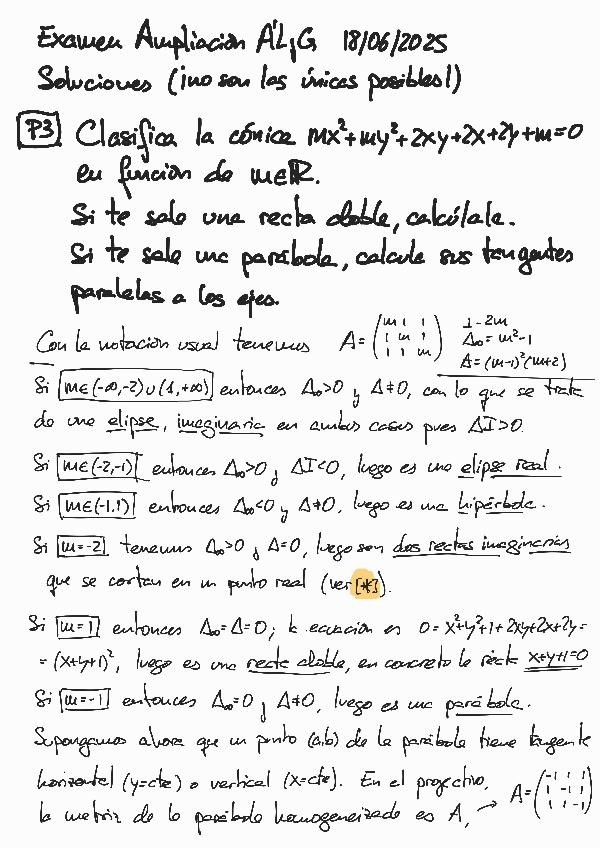 Examen Ampliación A'L,G 18/06/2025
Soluciones (¡no son las únicas posibles!)
P3 Clasifica la cónica mx²+my²+2xy+2x+2y+m=0
en función de m∈ℝ.
Si te sale una recta doble, calcúlala.
Si te sale una parábola, calcula sus tangentes
paralelas a los ejes.
Con la notación usual tenemos A=(m 1 1 / 1 m 1 / 1 1 m) I=2m Δ∞=m²-1 Δ=(m-1)²(m+2)
Si m∈(-∞,-2)∪(1,+∞) entonces Δ∞>0 y Δ≠0, con lo que se trata
de una elipse, imaginaria en ambos casos pues ΔI>0.
Si m∈(-2,-1) entonces Δ∞>0 y ΔI<0, luego es una elipse real.
Si m∈(-1,1) entonces Δ∞<0 y Δ≠0, luego es una hipérbola.
Si m=-2 tenemos Δ∞>0 y Δ=0, luego son dos rectas imaginarias
que se cortan en un punto real (ver [*]).
Si m=1 entonces Δ∞=Δ=0; la ecuación es 0=x²+y²+1+2xy+2x+2y=
=(x+y+1)², luego es una recta doble, en concreto la recta x+y+1=0
Si m=-1 entonces Δ∞=0 y Δ≠0, luego es una parábola.
Supongamos ahora que un punto (a,b) de la parábola tiene tangente
horizontal (y=cte) o vertical (x=cte). En el proyectivo,
la matriz de la parábola homogeneizada es A, → A=(-1 1 1 / 1 -1 1 / 1 1 -1)